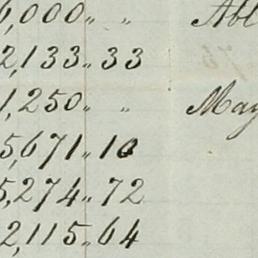 6,000 〃 〃 Abl
2,133 〃 33
1,250 〃 〃 May
5,671 〃 10
5,274 〃 72
2,115 〃 64